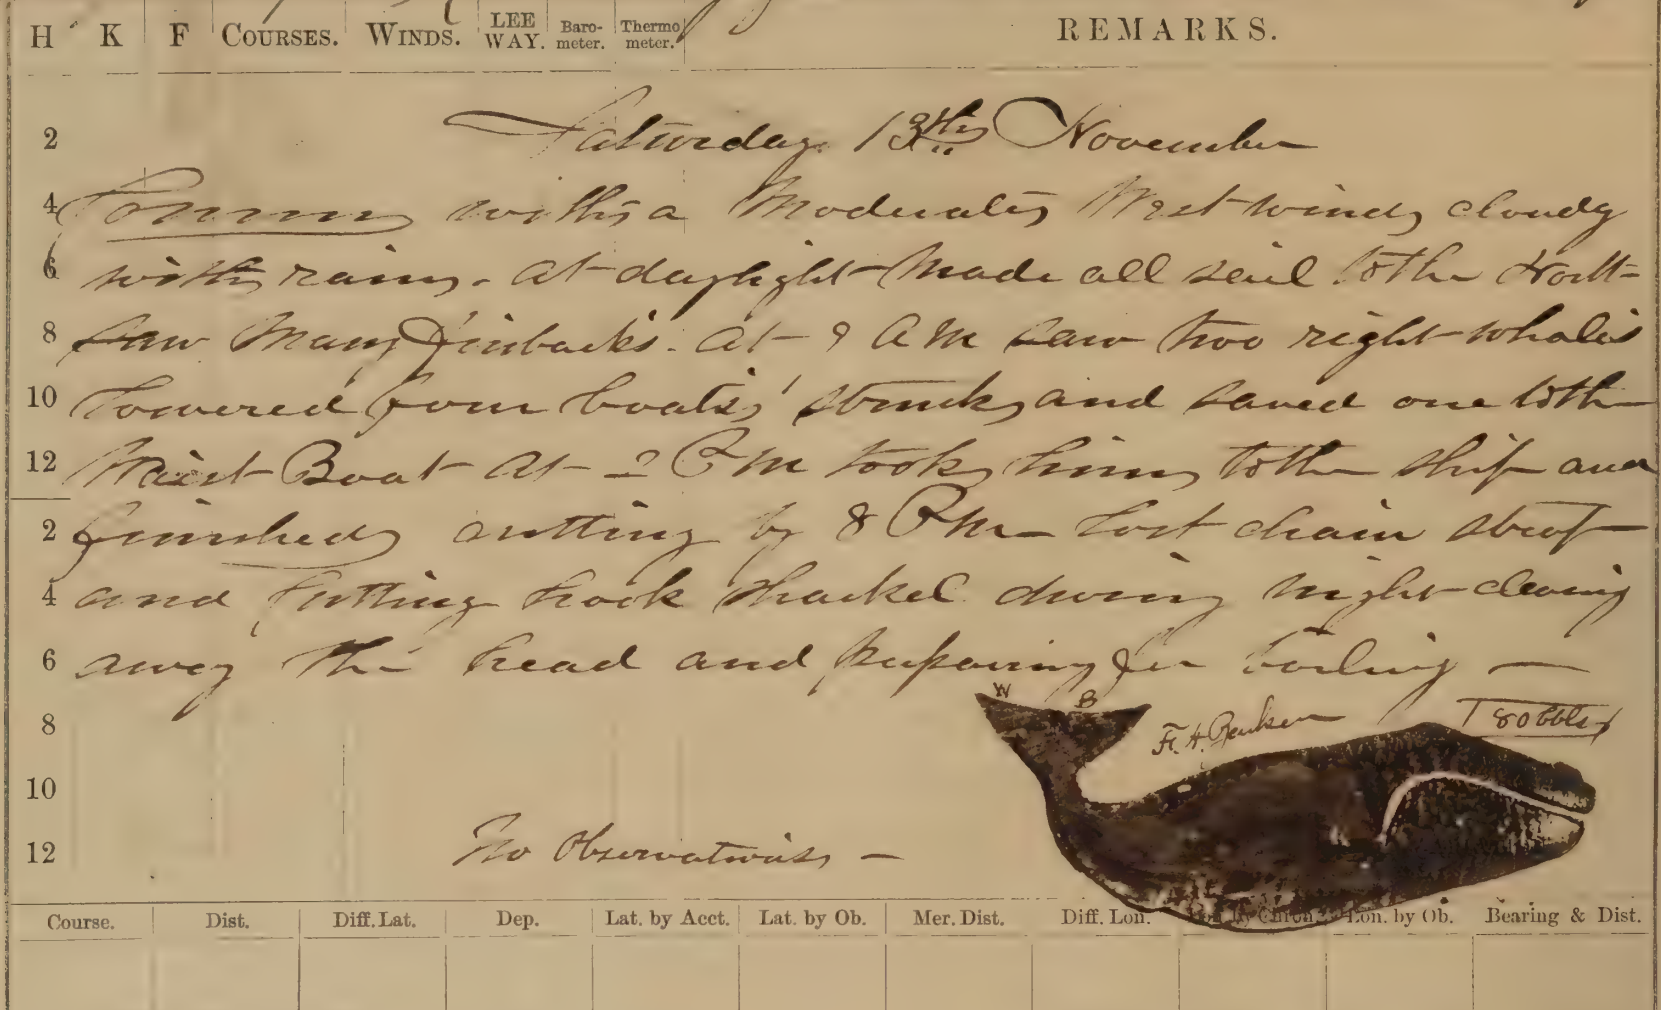 H K F COURSES. WINDS. LEE WAY. Barometer. Thermometer. REMARKS.
2 Saturday 13th November
4 Comm with a Moderate West wind, cloudy
6 with rain. at daylight Made all sail to the North
8 saw Many finbacks. at 9 AM saw two right whales
10 Lowered four boats, struck and saved one to the
12 Waist Boat at 2 PM took him to the ship and
2 finished cutting by 8 PM Lost chain strap
4 and cutting hook shackel during night clearing
6 away the head and preparing for boiling —
W B
8 F. H. 80 bbls
10
12 No Observations —
Course. Dist. Diff. Lat. Dep. Lat. by Acct. Lat. by Ob. Mer. Dist. Diff. Lon. Lon. by Chron. Lon. by Ob. Bearing & Dist.